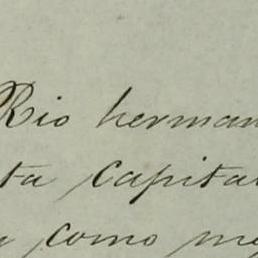 Rio herman
ta capital
como me